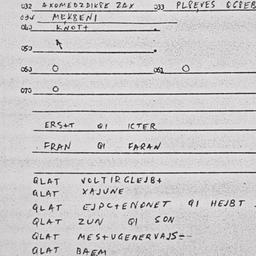 032 AXOMEDZDIKSE ZAX 033 PLSEVES
034 MEKBENI
042 KNOT+
052
062 O 063 O
072 O
ERS+T QI ICTER
FRAN QI FARAN
QLAT VOLTIRGLEJB+
QLAT XAJUNE
QLAT EJPC+ENONET QI HEJBT
QLAT ZUN QI SON
QLAT MES+UGENERVAJS=
QLAT BAEM